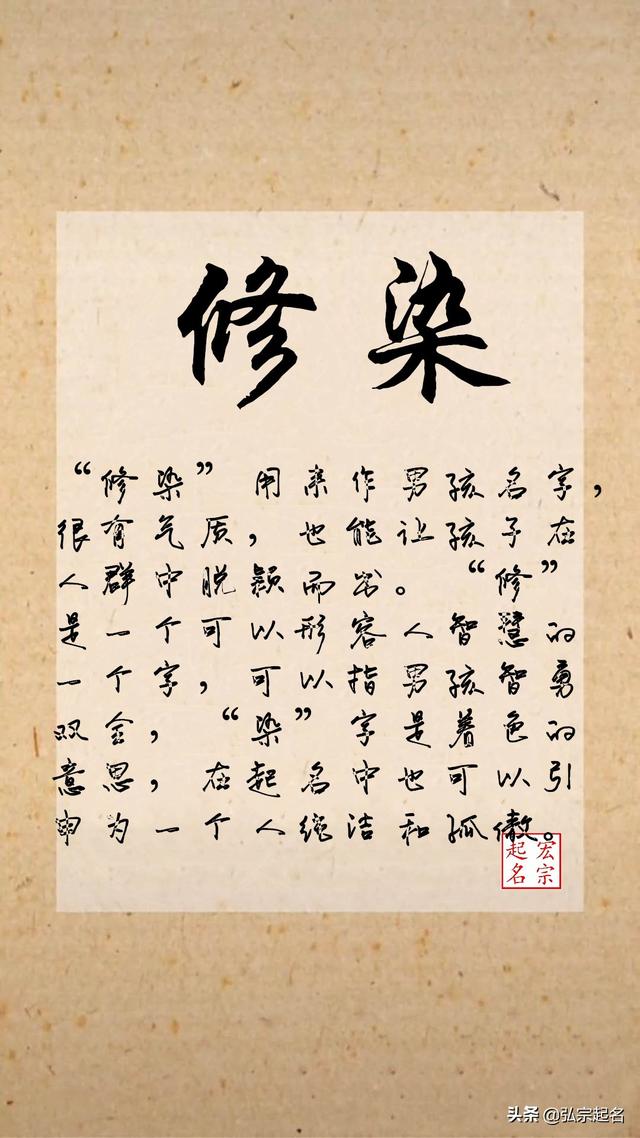 修染
“修染”用来作男孩名字，
很有气质，也能让孩子在
人群中脱颖而出。“修”
是一个可以形容人智慧的
一个字，可以指男孩智勇
双全，“染”字是着色的
意思，在起名中也可以引
申为一个人纯洁和孤傲。
宏宗
起名
头条 @弘宗起名